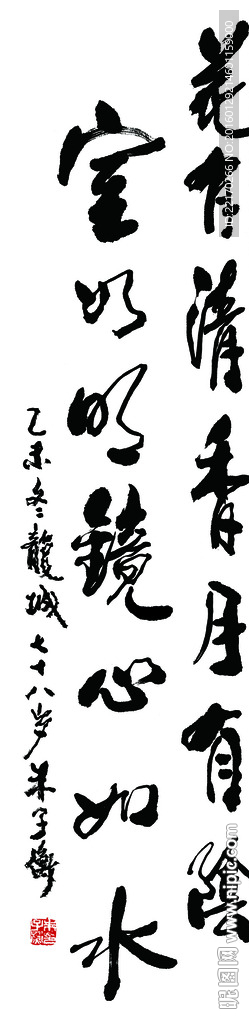 花有清香月有陰
室如明鏡心如水
乙未冬龍城七十八岁朱子衡
昵图网 www.nipic.com